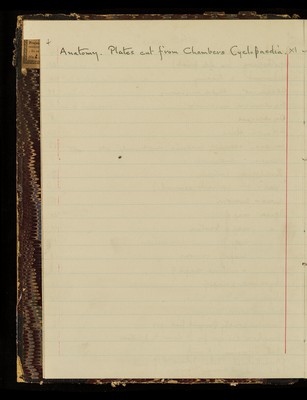 + Anatomy. Plates cut from Chambers Cyclopaedia.